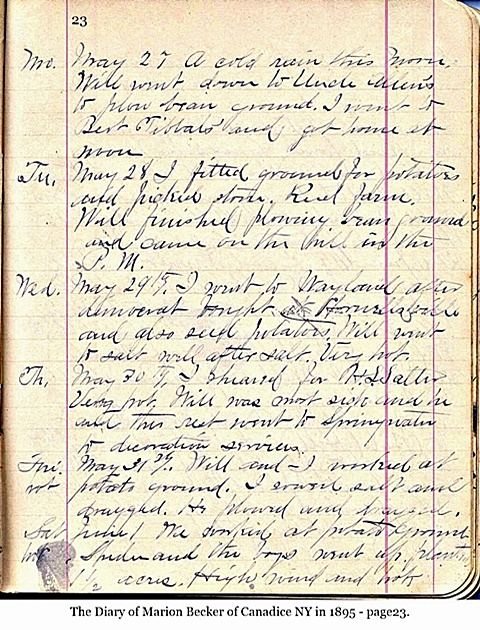 23
Mo. May 27 A cold rain this morn.
Will went down to Uncle Allen's
to plow bean ground. I went to
Bert Tibbals and got home at
noon
Tu, May 28 I fitted ground for potatoes
and picked stone. Reed farm.
Will finished plowing bean ground
and came on the hill in the
P. M.
Wed. May 29th. I went to Wayland after
democrat bought at Hornellsville
and also seed potatoes. Will went
to salt well after salt. Very hot.
Th, May 30th, I sheared for
Very hot. Will was most sick and he
and the rest went to Springwater
to decoration services.
Fri. May 31st. Will and I worked at
hot potato ground. I sowed salt and
dragged. He plowed and
Sat June 1 We worked at potato ground
hot and the boys went up
1/2 acres. High wind and hot
The Diary of Marion Becker of Canadice NY in 1895 - page23.